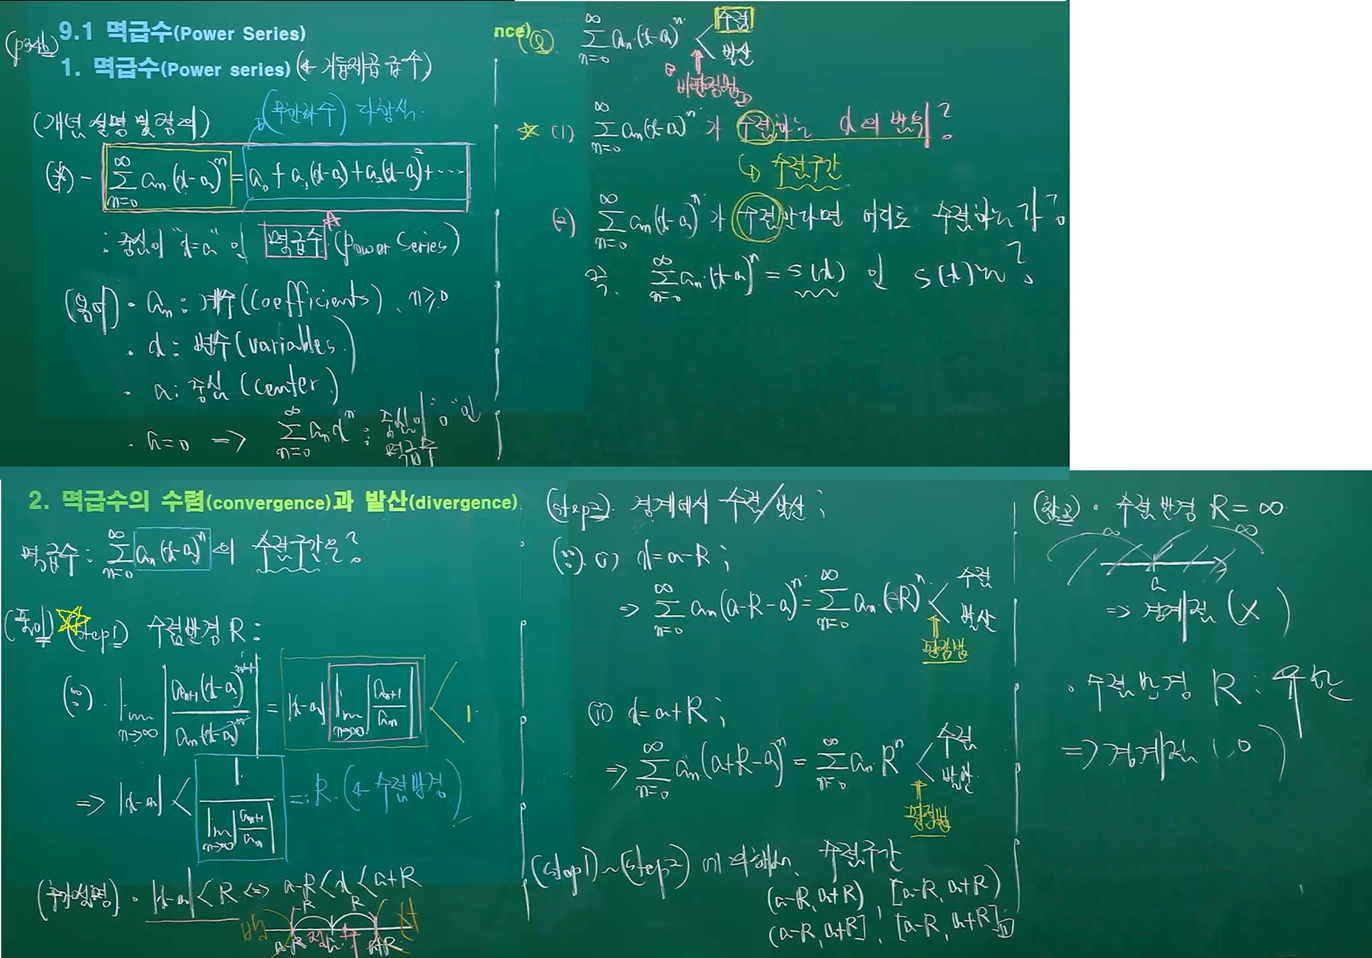 9.1 멱급수(Power Series)
1. 멱급수(Power series) (← 거듭제곱 급수)
(개념 설명 및 정의)
(무한차수) 다항식
(*) - ∑_{n=0}^{∞} a_n (x-a)^n = a_0 + a_1(x-a) + a_2(x-a)^2 + ⋯
: 중심이 "x=a" 인 멱급수 (power Series)
(용어) · a_n : 계수(coefficients), n≥0
· x : 변수(variables)
· a : 중심 (center)
· a=0 ⇒ ∑_{n=0}^{∞} a_n x^n : 중심이 "0"인 멱급수
nce)
(Q) ∑_{n=0}^{∞} a_n (x-a)^n < 수렴 발산
☆ (1) ∑_{n=0}^{∞} a_n(x-a)^n 가 수렴하는 x의 범위?
↳ 수렴구간
(2) ∑_{n=0}^{∞} a_n(x-a)^n 가 수렴한다면 어디로 수렴하는가?
즉, ∑_{n=0}^{∞} a_n (x-a)^n = S(x) 인 S(x)는?
2. 멱급수의 수렴(convergence)과 발산(divergence)
멱급수 : ∑_{n=0}^{∞} a_n(x-a)^n 의 수렴구간은?
(풀이) ☆ (step1) 수렴반경 R :
(∵) lim_{n→∞} |a_{n+1}(x-a)^{n+1} / a_n(x-a)^n| = |x-a| lim_{n→∞} |a_{n+1}/a_n| < 1
⇒ |x-a| < 1 / lim_{n→∞} |a_{n+1}/a_n| =: R (← 수렴반경)
(추가설명) · |x-a| < R ⇔ a-R < x < a+R
R R
a-R a a+R
(step2) 경계에서 수렴/발산 ;
(∵) (i) x = a-R ;
⇒ ∑_{n=0}^{∞} a_n (a-R-a)^n = ∑_{n=0}^{∞} a_n (-R)^n < 수렴 발산
판정법
(ii) x = a+R ;
⇒ ∑_{n=0}^{∞} a_n (a+R-a)^n = ∑_{n=0}^{∞} a_n R^n < 수렴 발산
판정법
(step1)~(step2) 에 의해서 수렴구간
(a-R, a+R), [a-R, a+R)
(a-R, a+R], [a-R, a+R]
(참고) · 수렴반경 R = ∞
∞ ∞
a
⇒ 경계점 (X)
· 수렴반경 R : 유한
⇒ 경계점 (O)